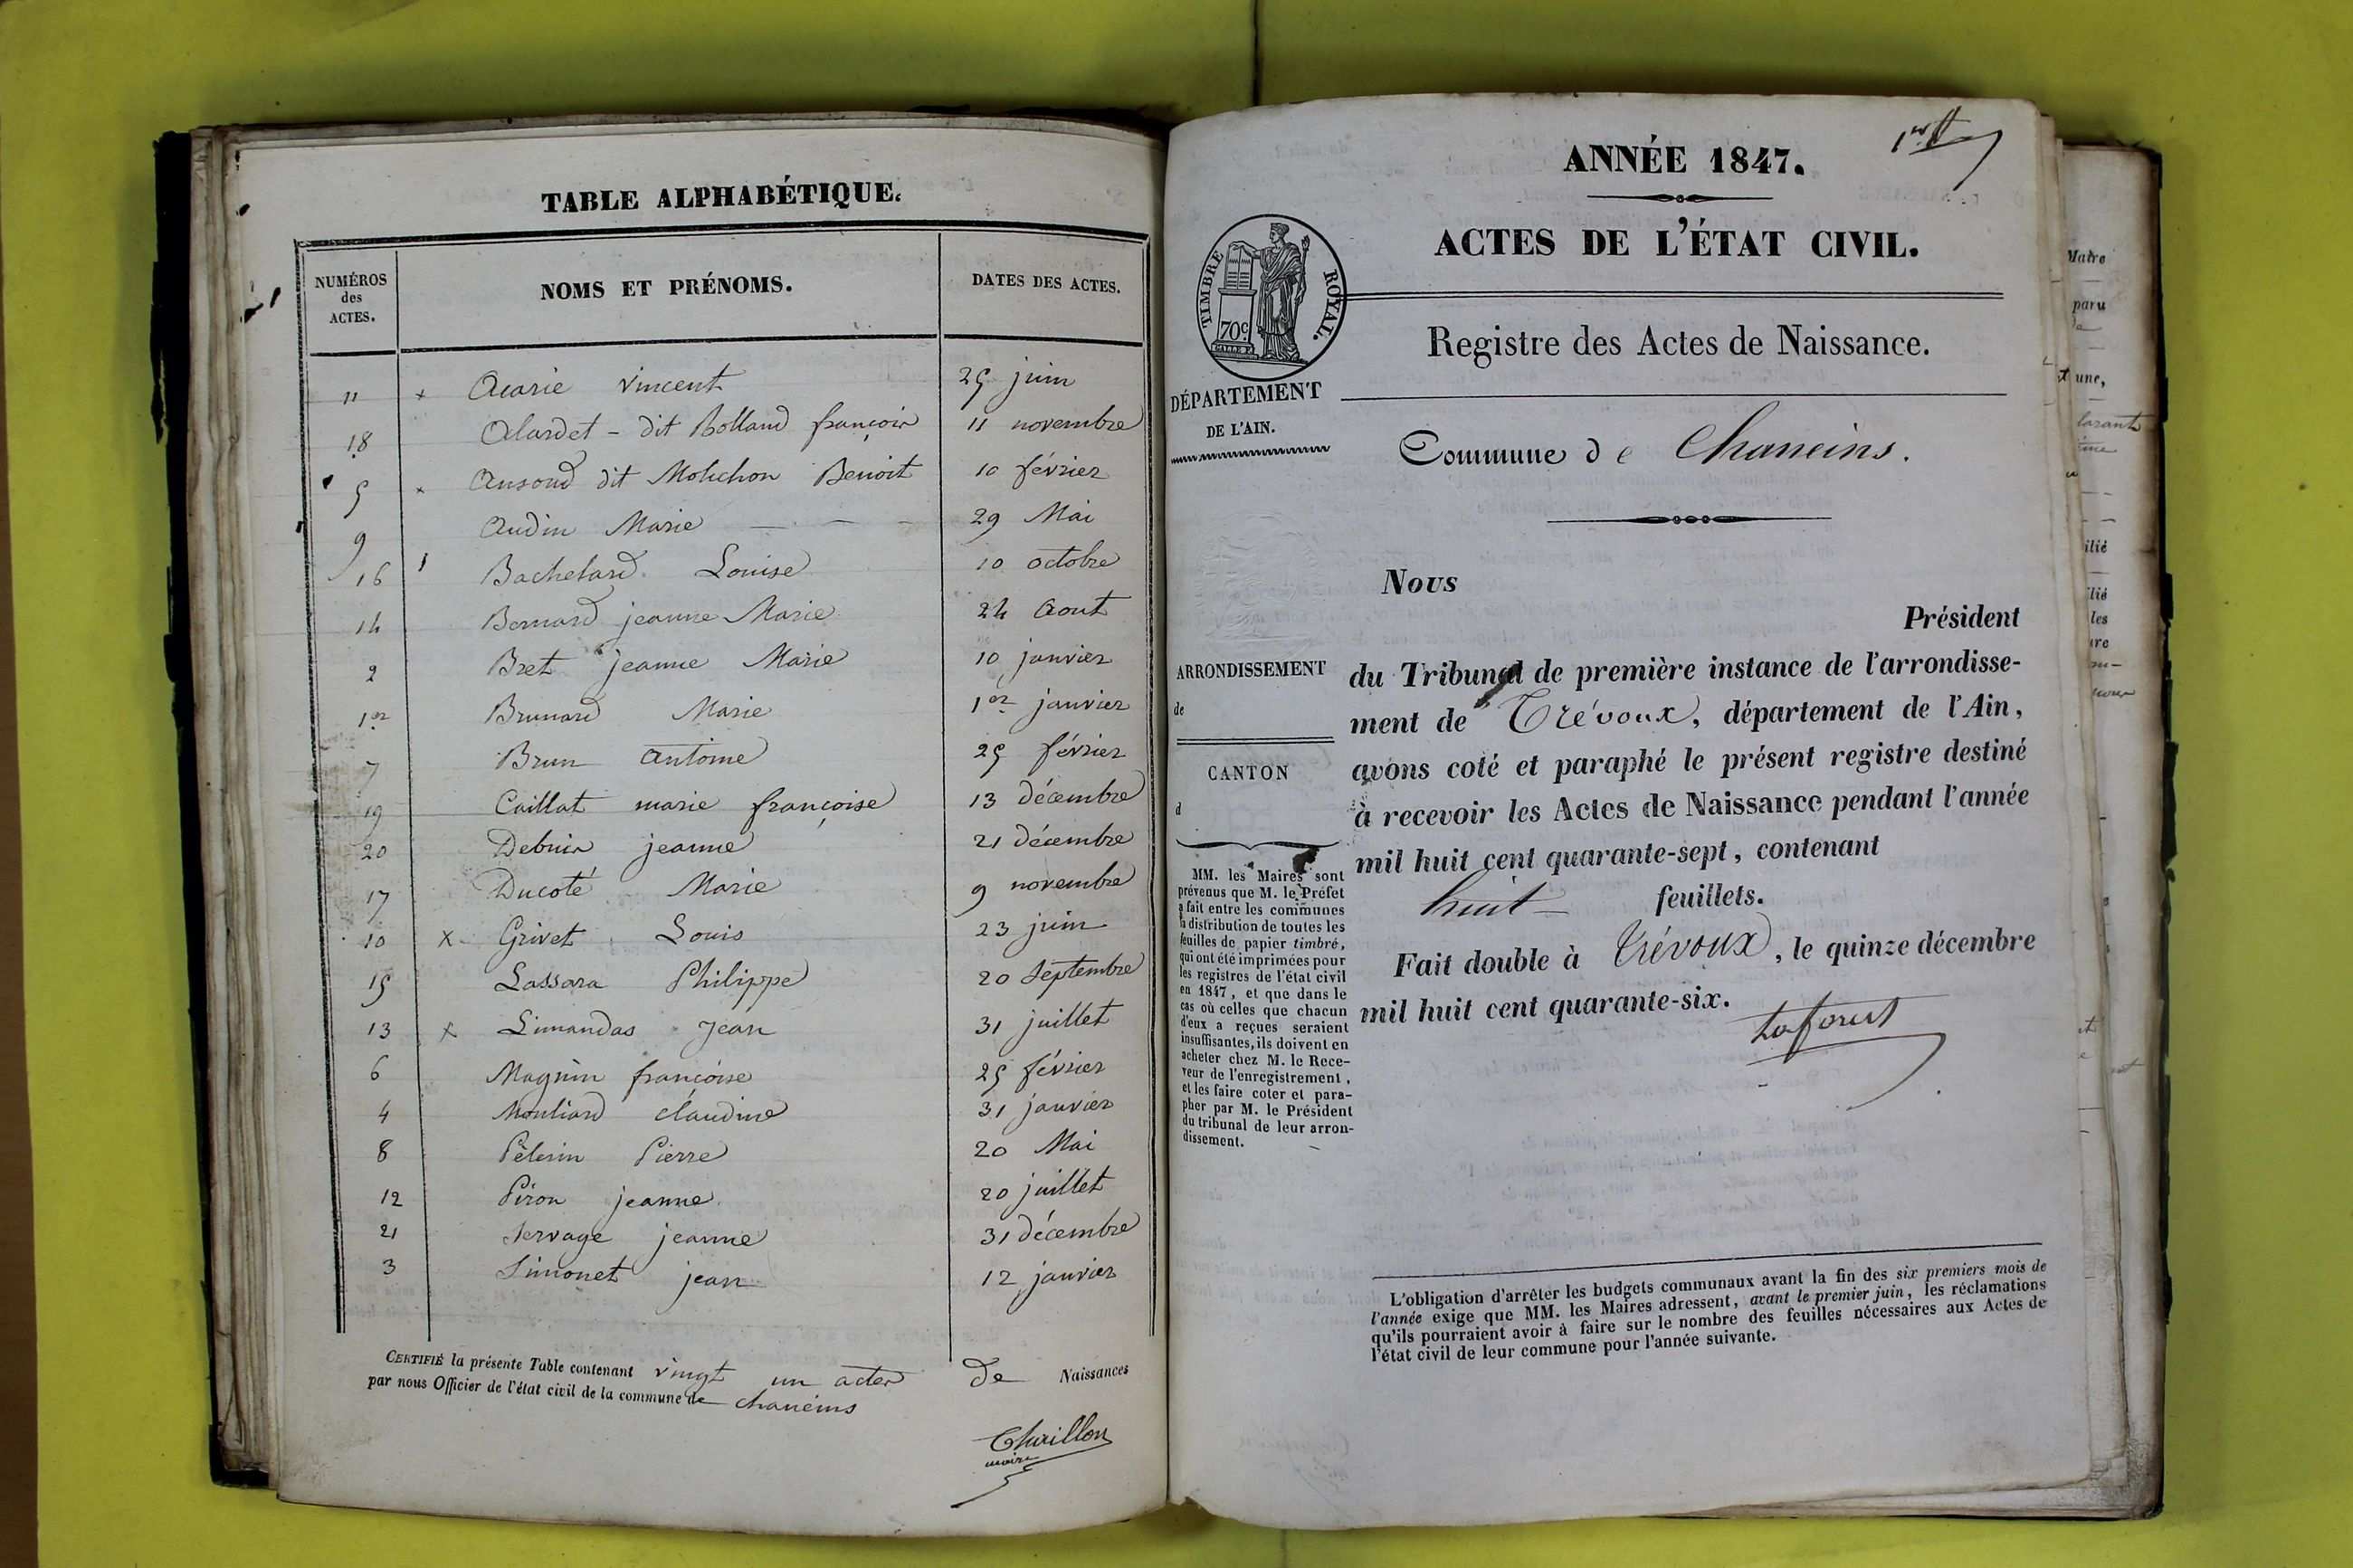 TABLE ALPHABÉTIQUE.
NUMÉROS
des
ACTES.
NOMS ET PRÉNOMS.
DATES DES ACTES.
11 x Acarie vincent 25 juin
18 Alardet - dit Rolland françois 11 novembre
5 x Ansoud dit Molichon Benoit 10 février
9 Audin Marie 29 Mai
16 Bachelard Louise 10 octobre
14 Bernard jeanne Marie 24 Aout
2 Bret jeanne Marie 10 janvier
1er Brunard Marie 1er janvier
7 Brun Antoine 25 février
19 Caillat marie françoise 13 décembre
20 Debuis jeanne 21 décembre
17 Ducoté Marie 9 novembre
10 x Grivet Louis 23 juin
15 Lassara Philippe 20 Septembre
13 x Limandas Jean 31 juillet
6 Magnin françoise 25 février
4 Mouliard claudine 31 janvier
8 Pélerin Pierre 20 Mai
12 Piron jeanne 20 juillet
21 Servage jeanne 31 décembre
3 Simonet jean 12 janvier
CERTIFIÉ la présente Table contenant vingt un actes de Naissances
par nous Officier de l'état civil de la commune de chaneins
Chaillon
maire
1er f
ANNÉE 1847.
ACTES DE L'ÉTAT CIVIL.
TIMBRE ROYAL.
70c
Registre des Actes de Naissance.
DÉPARTEMENT
DE L'AIN.
Commune de Chaneins.
Nous
Président
du Tribunal de première instance de l'arrondisse-
ment de Trévoux, département de l'Ain,
avons coté et paraphé le présent registre destiné
à recevoir les Actes de Naissance pendant l'année
mil huit cent quarante-sept, contenant
huit feuillets.
Fait double à Trévoux, le quinze décembre
mil huit cent quarante-six.
Laforest
ARRONDISSEMENT
de
CANTON
d
MM. les Maires sont
prévenus que M. le Préfet
a fait entre les communes
la distribution de toutes les
feuilles de papier timbré,
qui ont été imprimées pour
les registres de l'état civil
en 1847, et que dans le
cas où celles que chacun
d'eux a reçues seraient
insuffisantes, ils doivent en
acheter chez M. le Rece-
veur de l'enregistrement,
et les faire coter et para-
pher par M. le Président
du tribunal de leur arron-
dissement.
L'obligation d'arrêter les budgets communaux avant la fin des six premiers mois de
l'année exige que MM. les Maires adressent, avant le premier juin, les réclamations
qu'ils pourraient avoir à faire sur le nombre des feuilles nécessaires aux Actes de
l'état civil de leur commune pour l'année suivante.
Maire
paru
une,